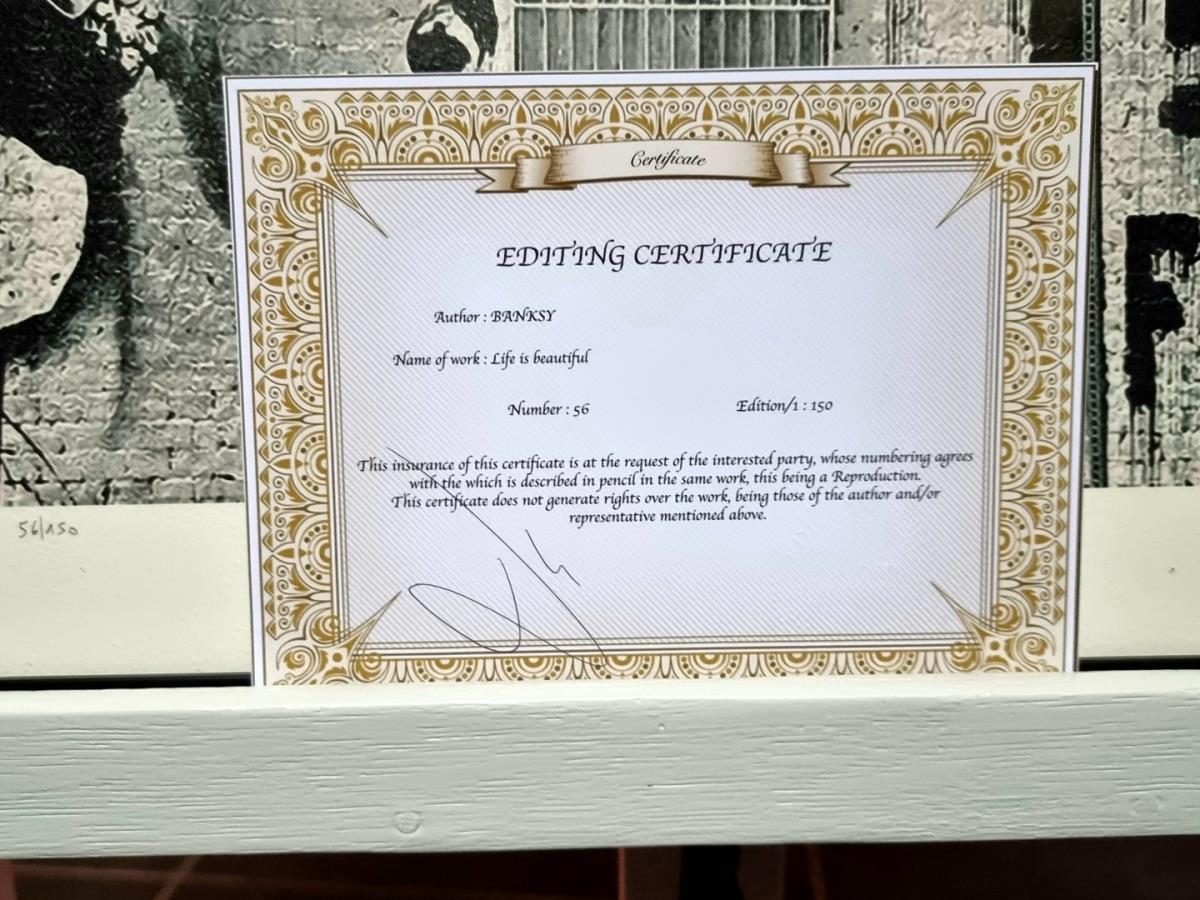 Certificate
EDITING CERTIFICATE
Author : BANKSY
Name of work : Life is beautiful
Number : 56 Edition/1 : 150
This insurance of this certificate is at the request of the interested party, whose numbering agrees
with the which is described in pencil in the same work, this being a Reproduction.
This certificate does not generate rights over the work, being those of the author and/or
representative mentioned above.
56/150